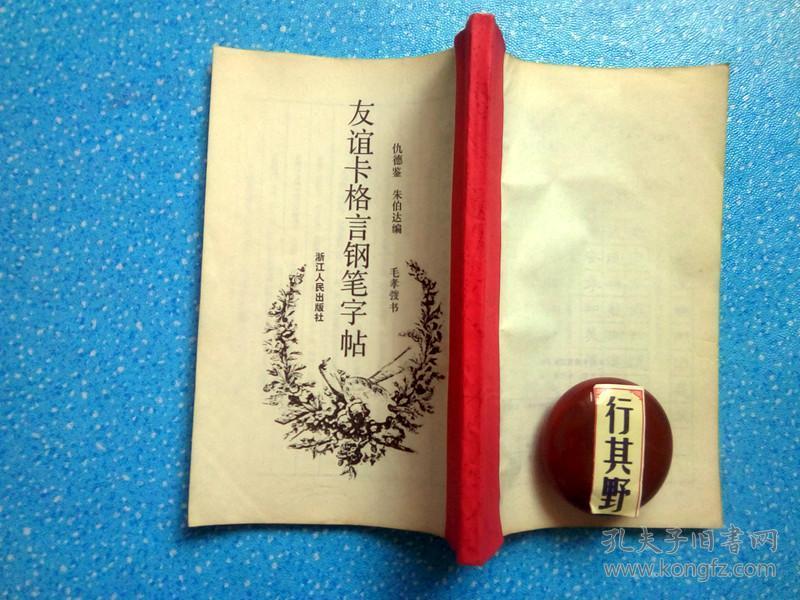 友谊卡格言钢笔字帖
仇德鉴 朱伯达编 毛孝弢书
浙江人民出版社
行其野
孔夫子旧书网
www.kongfz.com